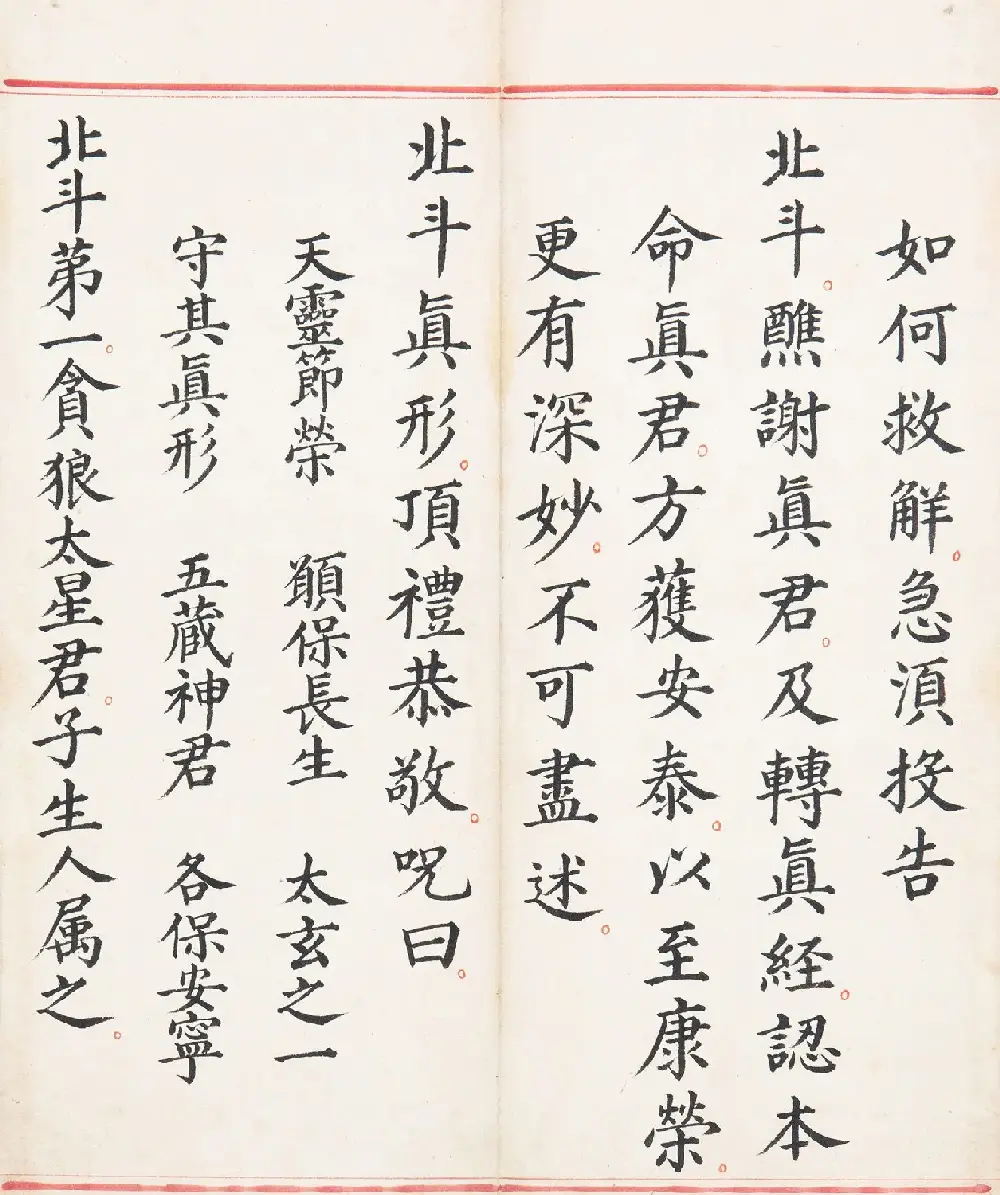 如何救解急湏投告
北斗醮謝眞君及轉眞経認本
命眞君方獲安泰以至康榮
更有深妙不可盡述
北斗眞形頂禮恭敬呪曰
天靈節榮 願保長生 太玄之一
守其眞形 五蔵神君 各保安寧
北斗苐一貪狼太星君子生人属之